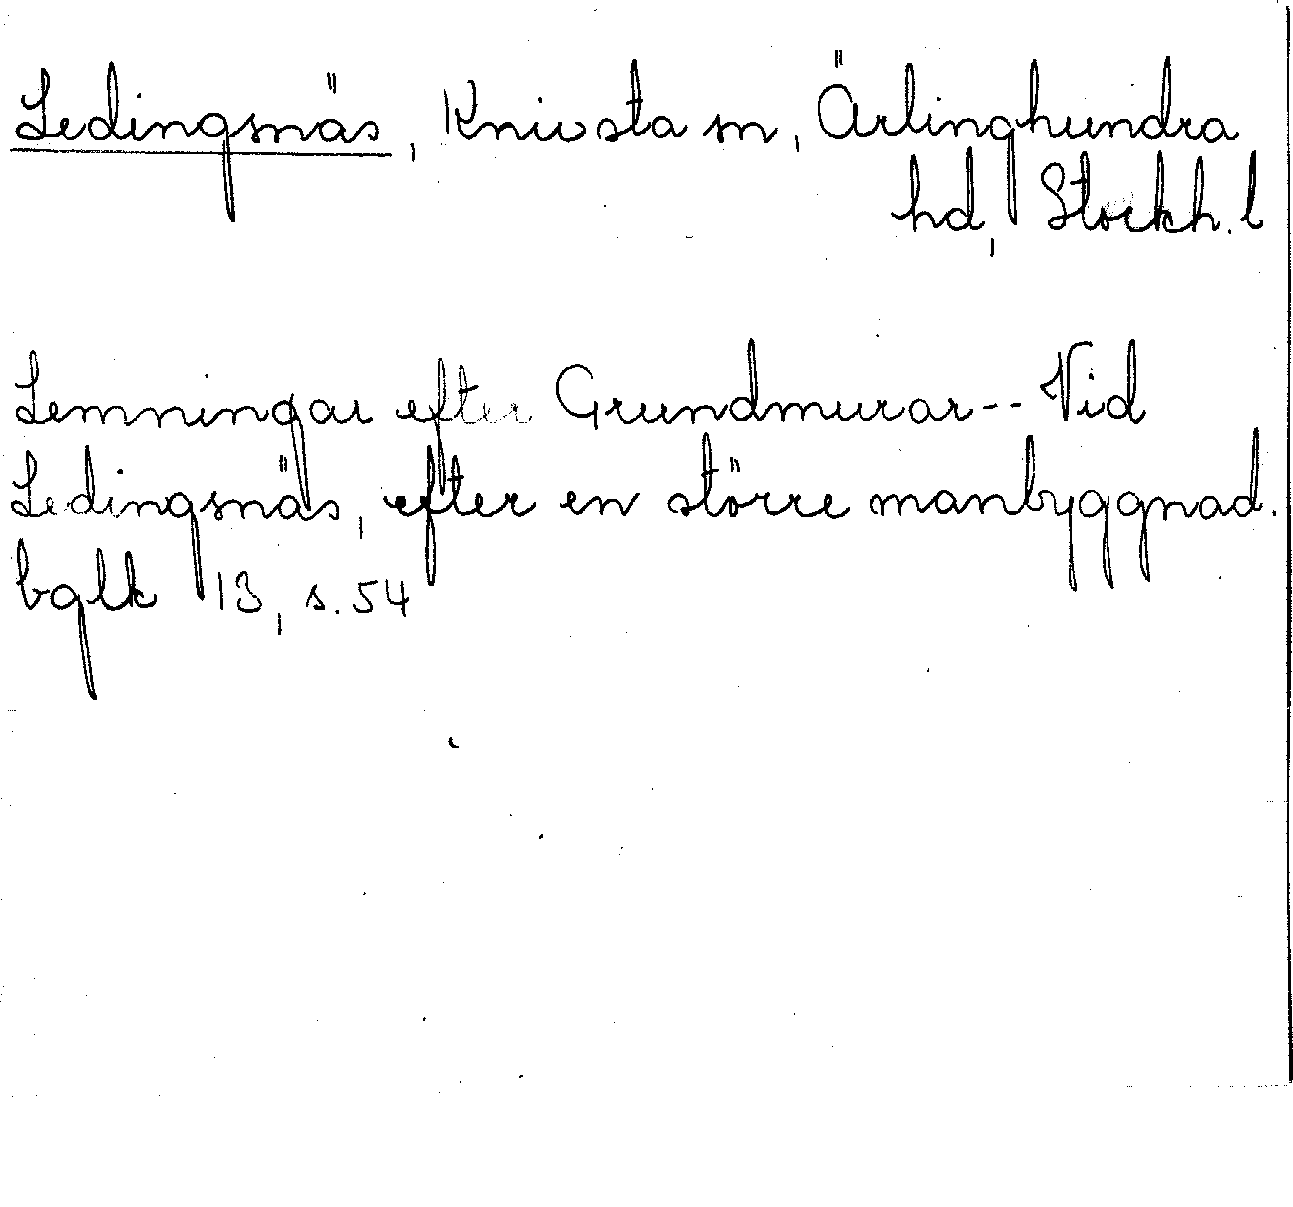 Ledingsnäs, Knivsta sn, Ärlinghundra
hd, Stockh. l
Lemningar efter Grundmurar -- Vid
Ledingsnäs, efter en större manbyggnad.
bglk 13, s. 54